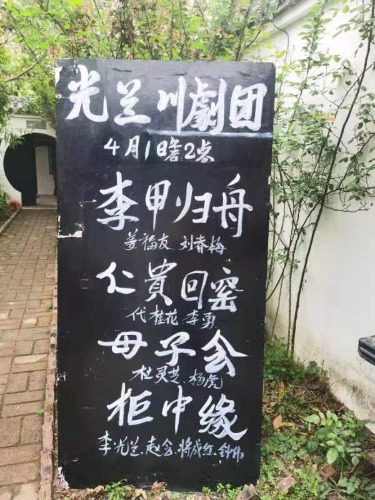 光兰川劇团
4月1日窨2点
李甲归舟
姜福友 刘春梅
仁貴回窑
代桂花 李勇
母子会
杜灵芝、杨虎
柜中缘
李光兰、赵